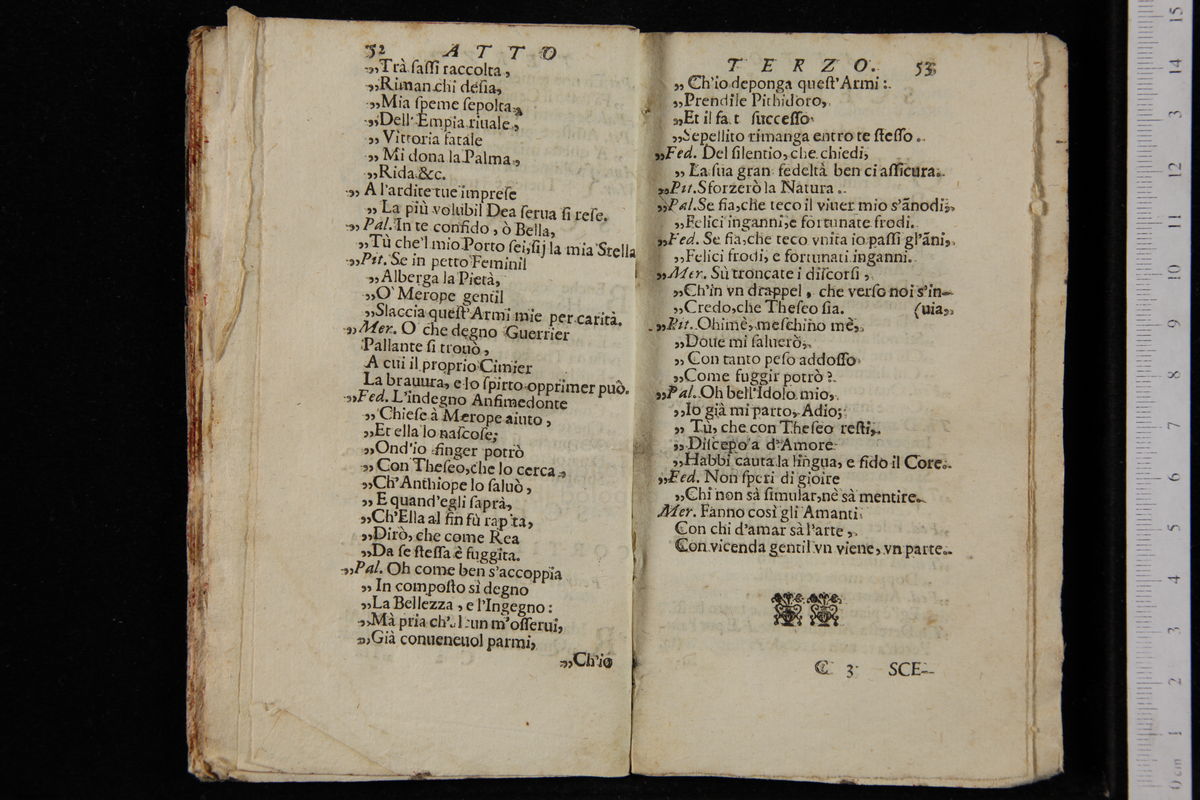 52 ATTO
„Trà ſaſſi raccolta,
„Riman chi deſia,
„Mia ſpeme ſepolta,
„Dell'Empia riuale,
„Vittoria fatale
„Mi dona la Palma,
„Rida &c.
„A l'ardite tue impreſe
„La più volubil Dea ſerua ſi reſe.
„Pal. In te confido, ò Bella,
„Tù che'l mio Porto ſei, ſij la mia Stella
„Pit. Se in petto Feminil
„Alberga la Pietà,
„O' Merope gentil
„Slaccia queſt'Armi mie per carità.
„Mer. O che degno Guerrier
Pallante ſi trouò,
A cui il proprio Cimier
La brauura, e lo ſpirto opprimer può.
„Fed. L'indegno Anfimedonte
„Chieſe à Merope aiuto,
„Et ella lo naſcoſe;
„Ond'io finger potrò
„Con Theſeo, che lo cerca,
„Ch'Anthiope lo ſaluò,
„E quand'egli ſaprà,
„Ch'Ella al fin fù rapita,
„Dirò, che come Rea
„Da ſe ſteſſa è fuggita.
„Pal. Oh come ben s'accoppia
„In compoſto sì degno
„La Bellezza, e l'Ingegno:
„Mà pria ch'alcun m'oſſerui,
„Già conueneuol parmi,
„Ch'io
TERZO. 53
„Ch'io deponga queſt'Armi:
„Prendile Pithidoro,
„Et il fa.t ſucceſſo
„Sepellito rimanga entro te ſteſſo.
„Fed. Del ſilentio, che chiedi,
„La ſua gran fedeltà ben ci aſſicura.
„Pit. Sforzerò la Natura.
„Pal. Se fia, che teco il viuer mio s'ãnodi,
„Felici inganni, e fortunate frodi.
„Fed. Se fia, che teco vnita io paſſi gl'ãni,
„Felici frodi, e fortunati inganni.
„Mer. Sù troncate i diſcorſi,
„Ch'in vn drappel, che verſo noi s'in-
„Credo, che Theſeo ſia. (uia,
„Pit. Ohimè, meſchino mè,
„Doue mi ſaluerò,
„Con tanto peſo addoſſo
„Come fuggir potrò?
„Pal. Oh bell'Idolo mio,
„Io già mi parto, Adio;
„Tù, che con Theſeo reſti,
„Diſcepo'a d'Amore
„Habbi cauta la lingua, e fido il Core.
„Fed. Non ſperi di gioire
„Chi non sà ſimular, nè sà mentire.
Mer. Fanno così gli Amanti
Con chi d'amar sà l'arte,
Con vicenda gentil vn viene, vn parte.
C 3 SCE-